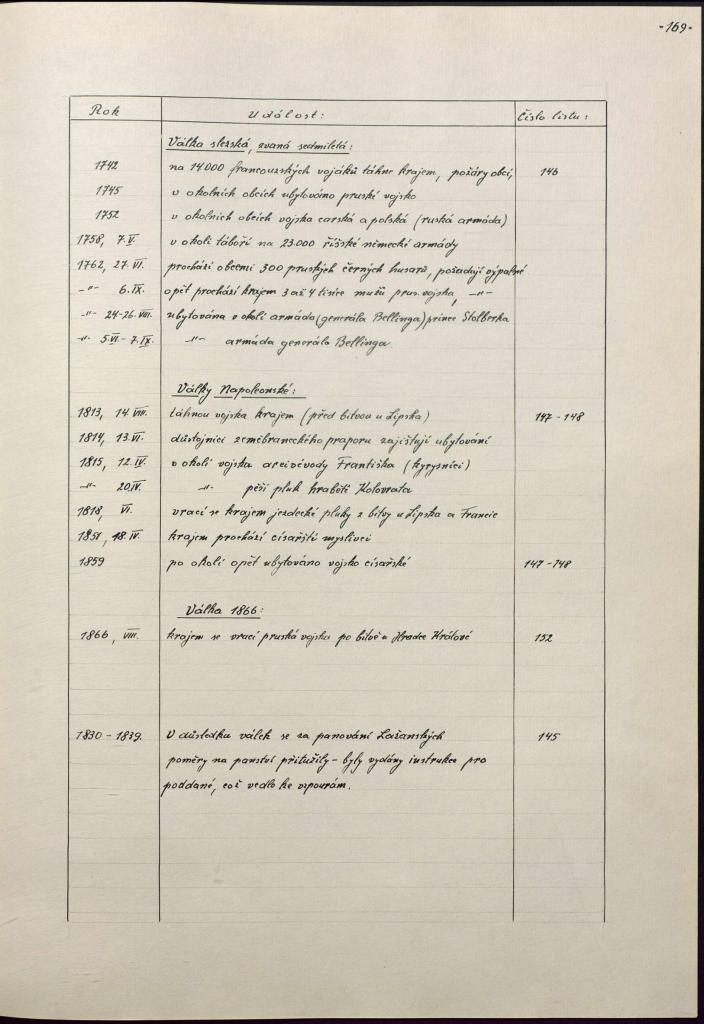 -169-
Rok Událost: Číslo listu:
Válka slezská, zvaná sedmiletá:
1742 na 14000 francouzských vojáků táhne krajem, požáry obcí, 146
1745 v okolních obcích ubytováno pruské vojsko
1752 v okolních obcích vojska carská a polská (ruská armáda)
1758, 7.V. v okolí táboří na 23.000 říšské německé armády
1762, 27.VI. prochází obcemi 300 pruských černých husarů, požadují výpalné
-"- 6.IX. opět prochází krajem 3 až 4 tisíce mužů prus. vojska, -"-
-"- 24-26.VIII. ubytována v okolí armáda (generála Bellinga) prince Stolberka
-"- 5.VI.-7.IX. -"- armáda generála Bellinga
Války Napoleonské:
1813, 14.VIII. táhnou vojska krajem (před bitvou u Lipska) 147-148
1814, 13.VI. důstojníci zeměbraneckého praporu zajišťují ubytování
1815, 12.IV. v okolí vojska arcivévody Františka (kyrysníci)
-"- 20.IV. -"- pěší pluk hraběte Kolovrata
1818, VI. vrací se krajem jezdecké pluky z bitvy u Lipska a Francie
1851, 18.IV. krajem prochází císařští myslivci
1859 po okolí opět ubytováno vojsko císařské 147-148
Válka 1866:
1866, VIII. krajem se vrací pruská vojska po bitvě u Hradce Králové 152
1830-1839. V důsledku válek se za panování Lažanských 145
poměry na panství přitužily - byly vydány instrukce pro
poddané, což vedlo ke vzpourám.